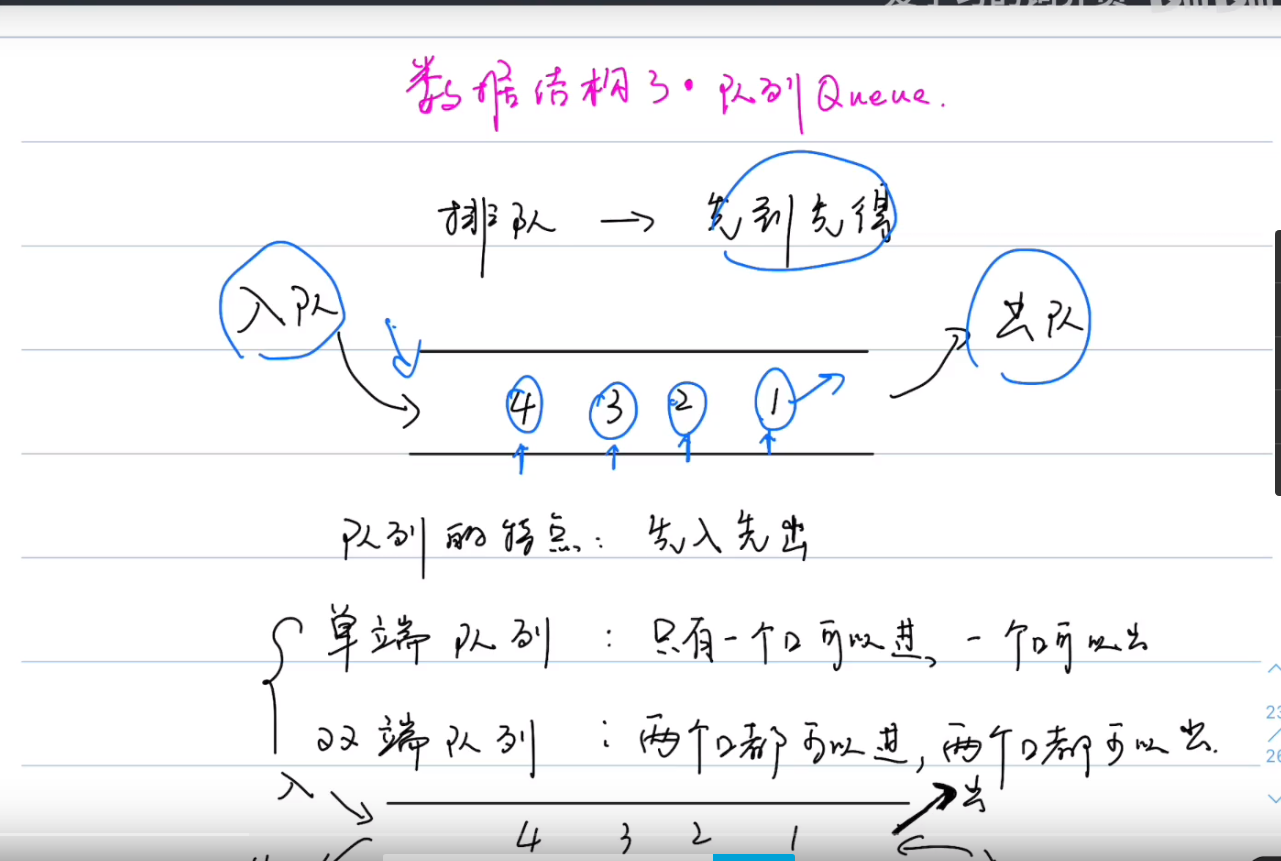 数据结构3·队列Queue.
排队 → 先到先得
入队
出队
4 3 2 1
队列的特点: 先入先出
单端队列 : 只有一个口可以进, 一个口可以出
双端队列 : 两个口都可以进, 两个口都可以出.
入
出
4 3 2 1
23
26